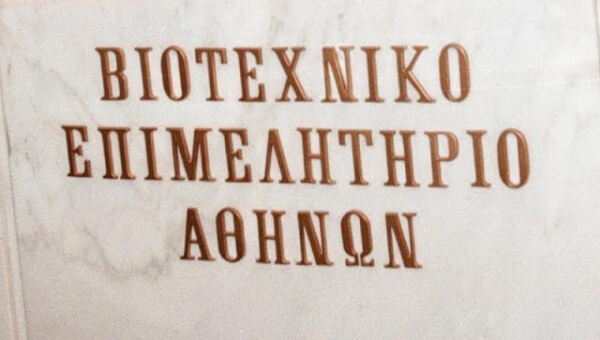 ΒΙΟΤΕΧΝΙΚΟ
ΕΠΙΜΕΛΗΤΗΡΙΟ
ΑΘΗΝΩΝ